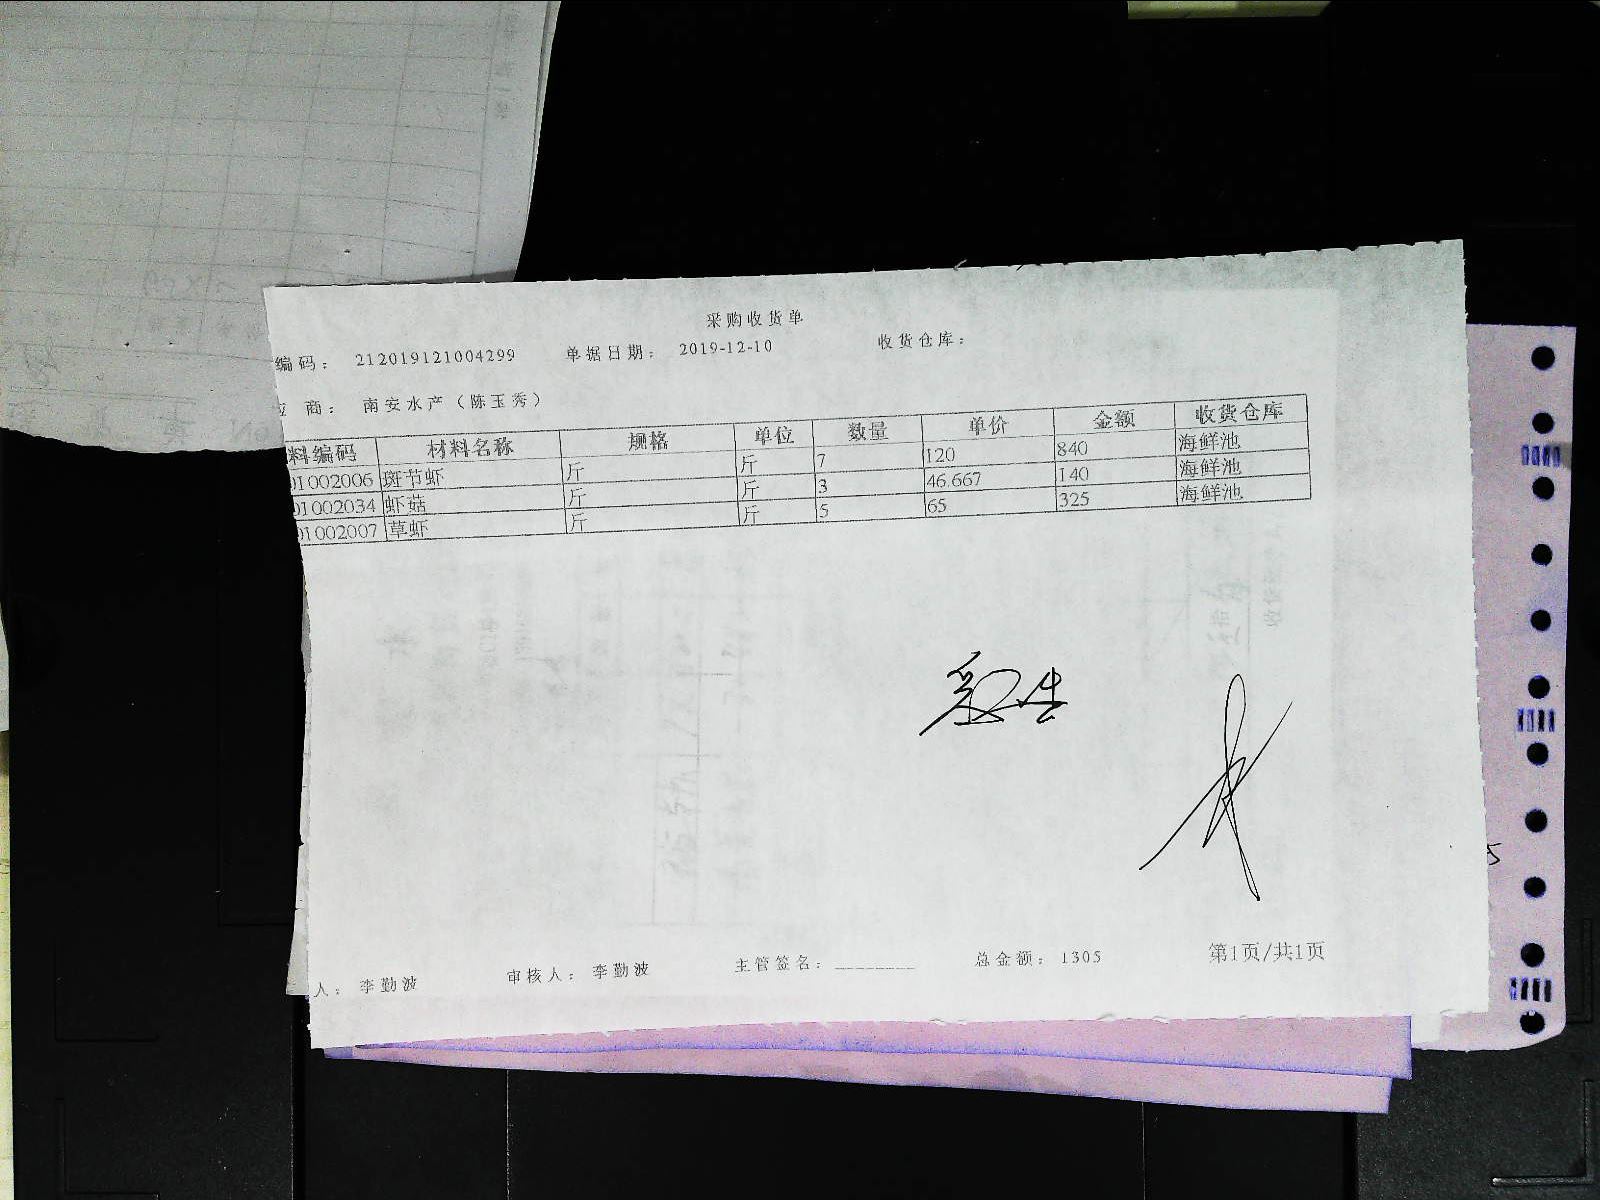 采购收货单
编码： 212019121004299 单据日期： 2019-12-10 收货仓库：
商： 南安水产（陈玉秀）
料编码 材料名称 规格 单位 数量 单价 金额 收货仓库
01002006 斑节虾 斤 斤 7 120 840 海鲜池
01002034 虾菇 斤 斤 3 46.667 140 海鲜池
01002007 草虾 斤 斤 5 65 325 海鲜池
人： 李勤波 审核人： 李勤波 主管签名： 总金额： 1305 第1页/共1页